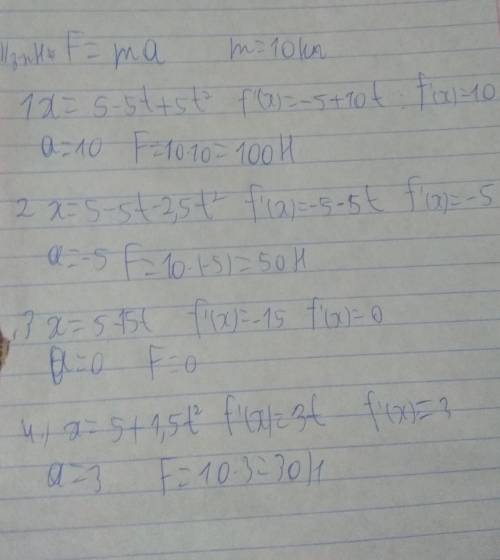 F=ma m=10кг
1 x=5-5t+5t² f'(x)=-5+10t f'(x)=10
a=10 F=10·10=100Н
2 x=5-5t-2,5t² f'(x)=-5-5t f'(x)=-5
a=-5 F=10·(-5)=50Н
3 x=5-15t f'(x)=-15 f'(x)=0
a=0 F=0
4.) x=5+1,5t² f'(x)=3t f'(x)=3
a=3 F=10·3=30Н